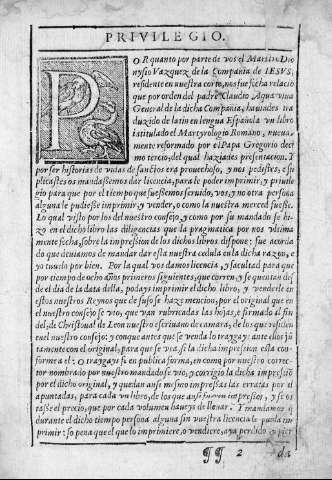 PRIVILEGIO.
POR quanto por parte de vos el Maestro Dio
nysio Vazquez de la Compañia de IESVS,
residente en nuestra corte, nos fue fecha relaciõ
que por orden del padre Claudio Aquaviua
General de la dicha Compañia, hauiades tra
duzido de latin en lengua Española vn libro
intitulado el Martyrologio Romano, nueua-
mente reformado por el Papa Gregorio deci
mo tercio, del qual haziades presentacion. Y
por ser historias de vidas de sanctos era prouechoso, y nos pedistes, e su
plicastes os mandassemos dar licencia, para le poder imprimir, y priuile
gio para que por el tiempo que fuessemos seruido, vos, y no otra persona
alguna le pudiesse imprimir y vender, o como la nuestra merced fuesse.
Lo qual visto por los del nuestro consejo, y como por su mandado se hi-
zo en el dicho libro las diligencias que la pragmatica por nos vltima
mente fecha, sobre la impressiõ de los dichos libros dispone: fue acorda
do que deuiamos de mandar dar esta nuestra cedula en la dicha razõ, e
yo tuuelo por bien. Por la qual vos damos licencia, y facultad para que
por tiempo de ocho años primeros siguientes, que corren, y se quentan des
de el dia de la data della, podays imprimir el dicho libro, y venderle en
estos nuestros Reynos que de suso se haze mencion, por el original que en
el nuestro consejo se vio, que van rubricadas las hojas, e firmado al fin
del, de Christoual de Leon nuestro escriuano de camara, de los que residen
en el nuestro consejo: y con que antes que se venda lo traygays ante ellos jũ
tamente con el original, para que se vea, si la dicha impression esta con-
forme a el: o traygays fe en publica forma, en como por nuestro corre-
ctor nombrado por nuestro mandado se vio, y corrigio la dicha impressiõ
por el dicho original, y quedan ansi mismo impressas las erratas por el
apuntadas, para cada vn libro, de los que ansi fueren impressos, y se os
tasse el precio, que por cada volumen haueys de lleuar. Y mandamos q̃
durante el dicho tiempo persona alguna sin vuestra licencia le pueda im
primir: so pena que el que lo imprimiere, o vendiere, aya perdido y pier
¶¶ 2 da